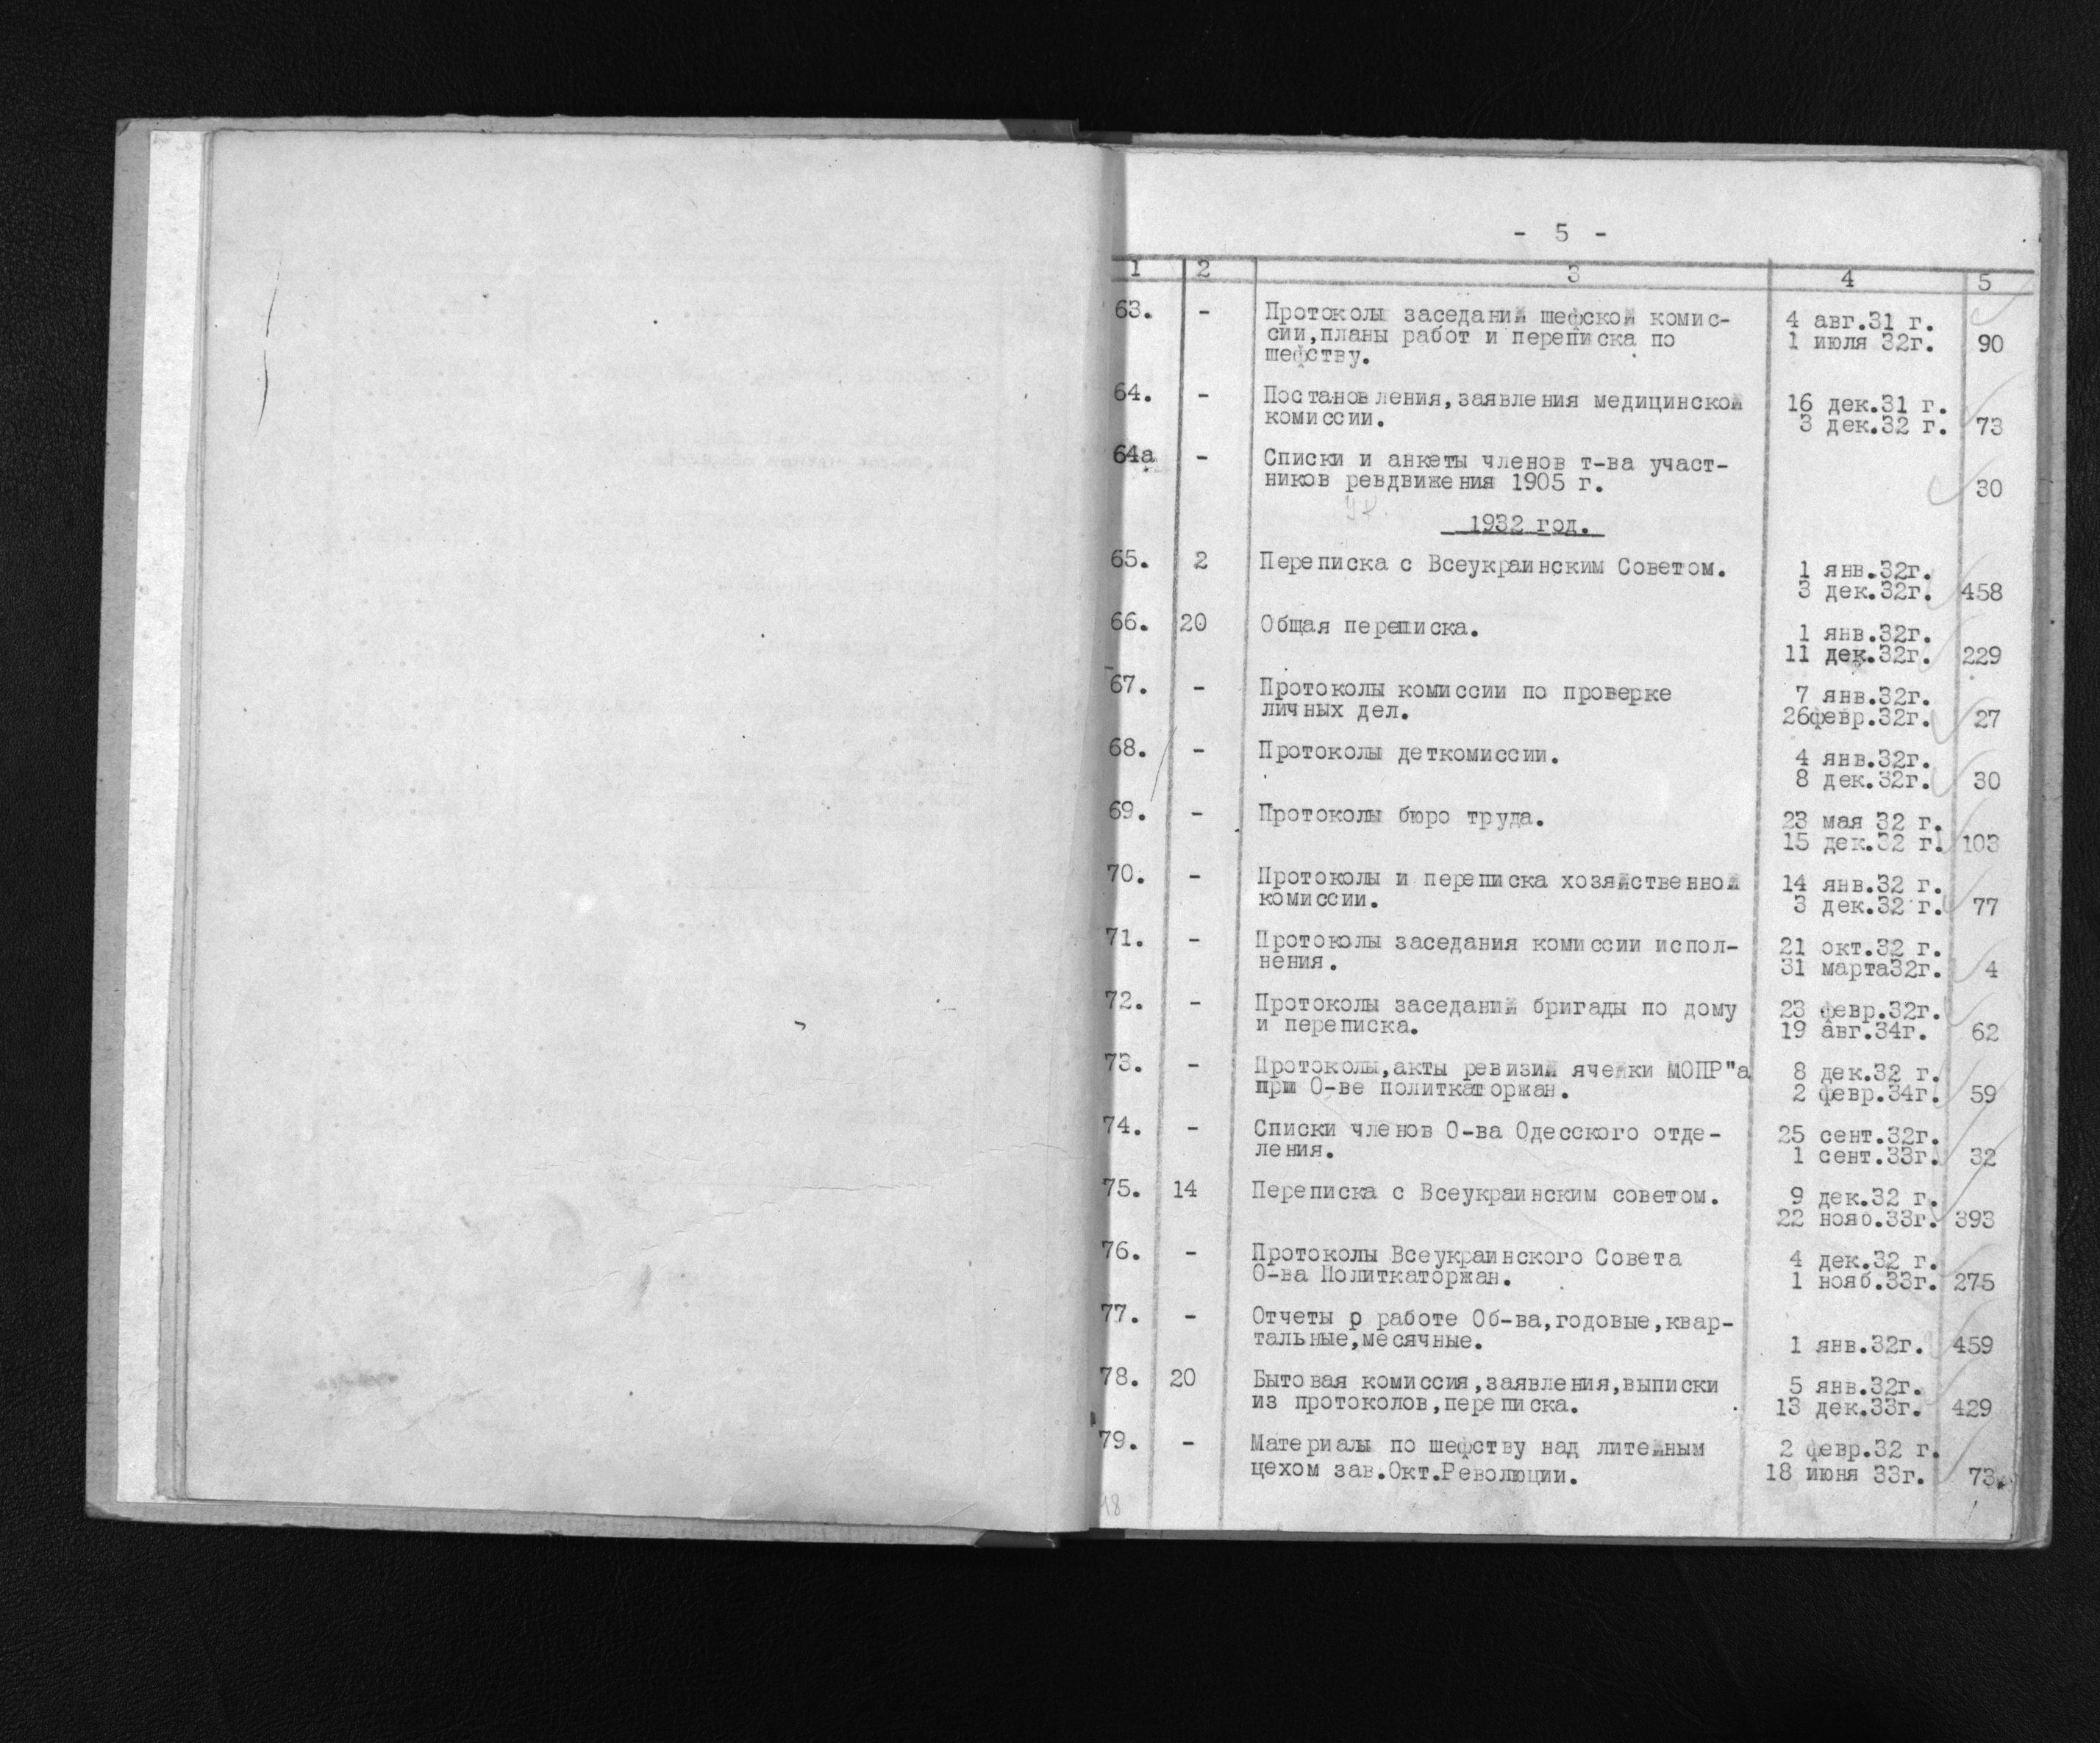 - 5 -
1 2 3 4 5
63. - Протоколы заседаний шефской комис- 4 авг.31 г.
сии,планы работ и переписка по 1 июля 32г. 90
шефству.
64. - Постановления,заявления медицинской 16 дек.31 г.
комиссии. 3 дек.32 г. 73
64а - Списки и анкеты членов т-ва участ-
ников ревдвижения 1905 г. 30
1932 год.
65. 2 Переписка с Всеукраинским Советом. 1 янв.32г.
3 дек.32г. 458
66. 20 Общая переписка. 1 янв.32г.
11 дек.32г. 229
67. - Протоколы комиссии по проверке 7 янв.32г.
личных дел. 26февр.32г. 27
68. - Протоколы деткомиссии. 4 янв.32г.
8 дек.32г. 30
69. - Протоколы бюро труда. 23 мая 32 г.
15 дек.32 г. 103
70. - Протоколы и переписка хозяйственной 14 янв.32 г.
комиссии. 3 дек.32 г. 77
71. - Протоколы заседания комиссии испол- 21 окт.32 г.
нения. 31 марта32г. 4
72. - Протоколы заседаний бригады по дому 23 февр.32г.
и переписка. 19 авг.34г. 62
73. - Протоколы,акты ревизий ячейки МОПР"а 8 дек.32 г.
при О-ве политкаторжан. 2 февр.34г. 59
74. - Списки членов О-ва Одесского отде- 25 сент.32г.
ления. 1 сент.33г. 32
75. 14 Переписка с Всеукраинским советом. 9 дек.32 г.
22 нояб.33г. 393
76. - Протоколы Всеукраинского Совета 4 дек.32 г.
О-ва Политкаторжан. 1 нояб.33г. 275
77. - Отчеты р работе Об-ва,годовые,квар-
тальные,месячные. 1 янв.32г. 459
78. 20 Бытовая комиссия,заявления,выписки 5 янв.32г.
из протоколов,переписка. 13 дек.33г. 429
79. - Материалы по шефству над литейным 2 февр.32 г.
цехом зав.Окт.Революции. 18 июня 33г. 73.